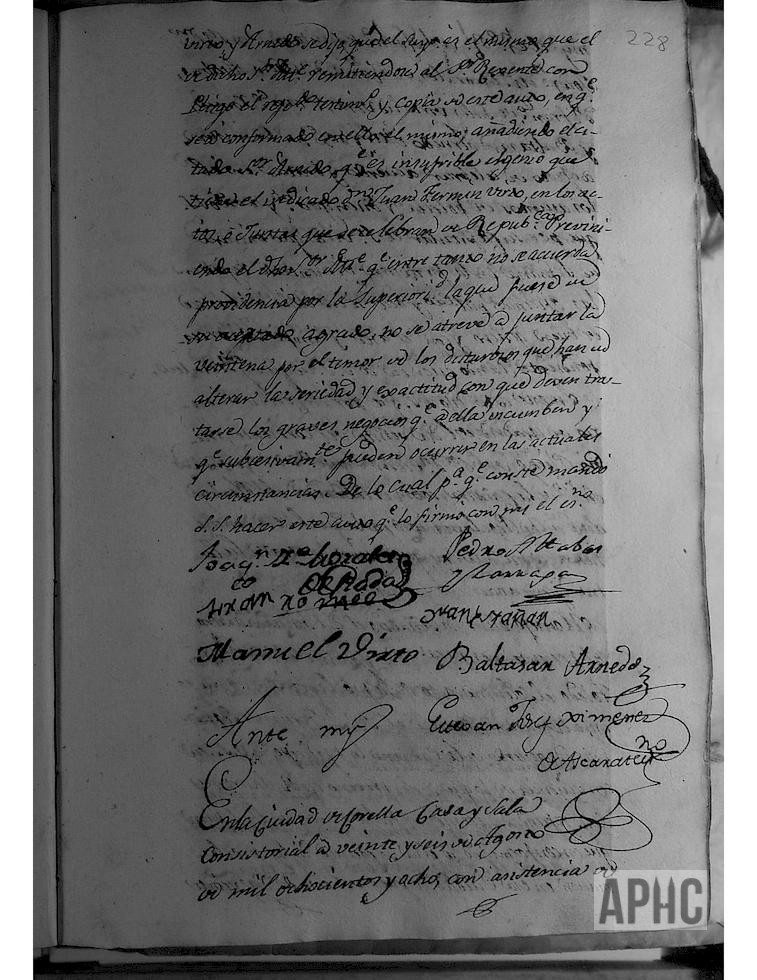 228
virto, y Arnedo se dijo, que el suyo es el mismo que el
de dicho Sor Alte remitiendose al Sor Regente con
Pliego el testimo y copia de este auto, en qe
conformado en ello el mismo; añadiendo el ci-
tado Sor Arnedo, qe es insufrible el genio que
tiene el indicado Dn Juan Fermin Virto, en los ac-
tos, é Juntas que se celebran de Repubca Previni-
endo el dho Sor Alte qe entre tanto no se acuerda
providencia por la Superioridd la que fuese de
su agrado, no se atreve a juntar la
veintena por el temor de los disturbios que han de
alterar la seriedad y exactitud con que deven tra-
tarse los graves negocios qe a ella incumben y
qe subcesivamte pueden ocurrir en las actuales
circunstancias. De lo cual pa qe conste mandó
S. S. hacer este auto qe lo firmó con mi el esno
Pedro Alcabar
Manuel Virto Baltasar Arnedo
Ante my Estevan Ximenez
de Ascarate esno
En la Ciudad de Corella Casa y Sala
Consistorial a veinte y seis de Agosto
de mil ochocientos y ocho, con asistencia de
APHC